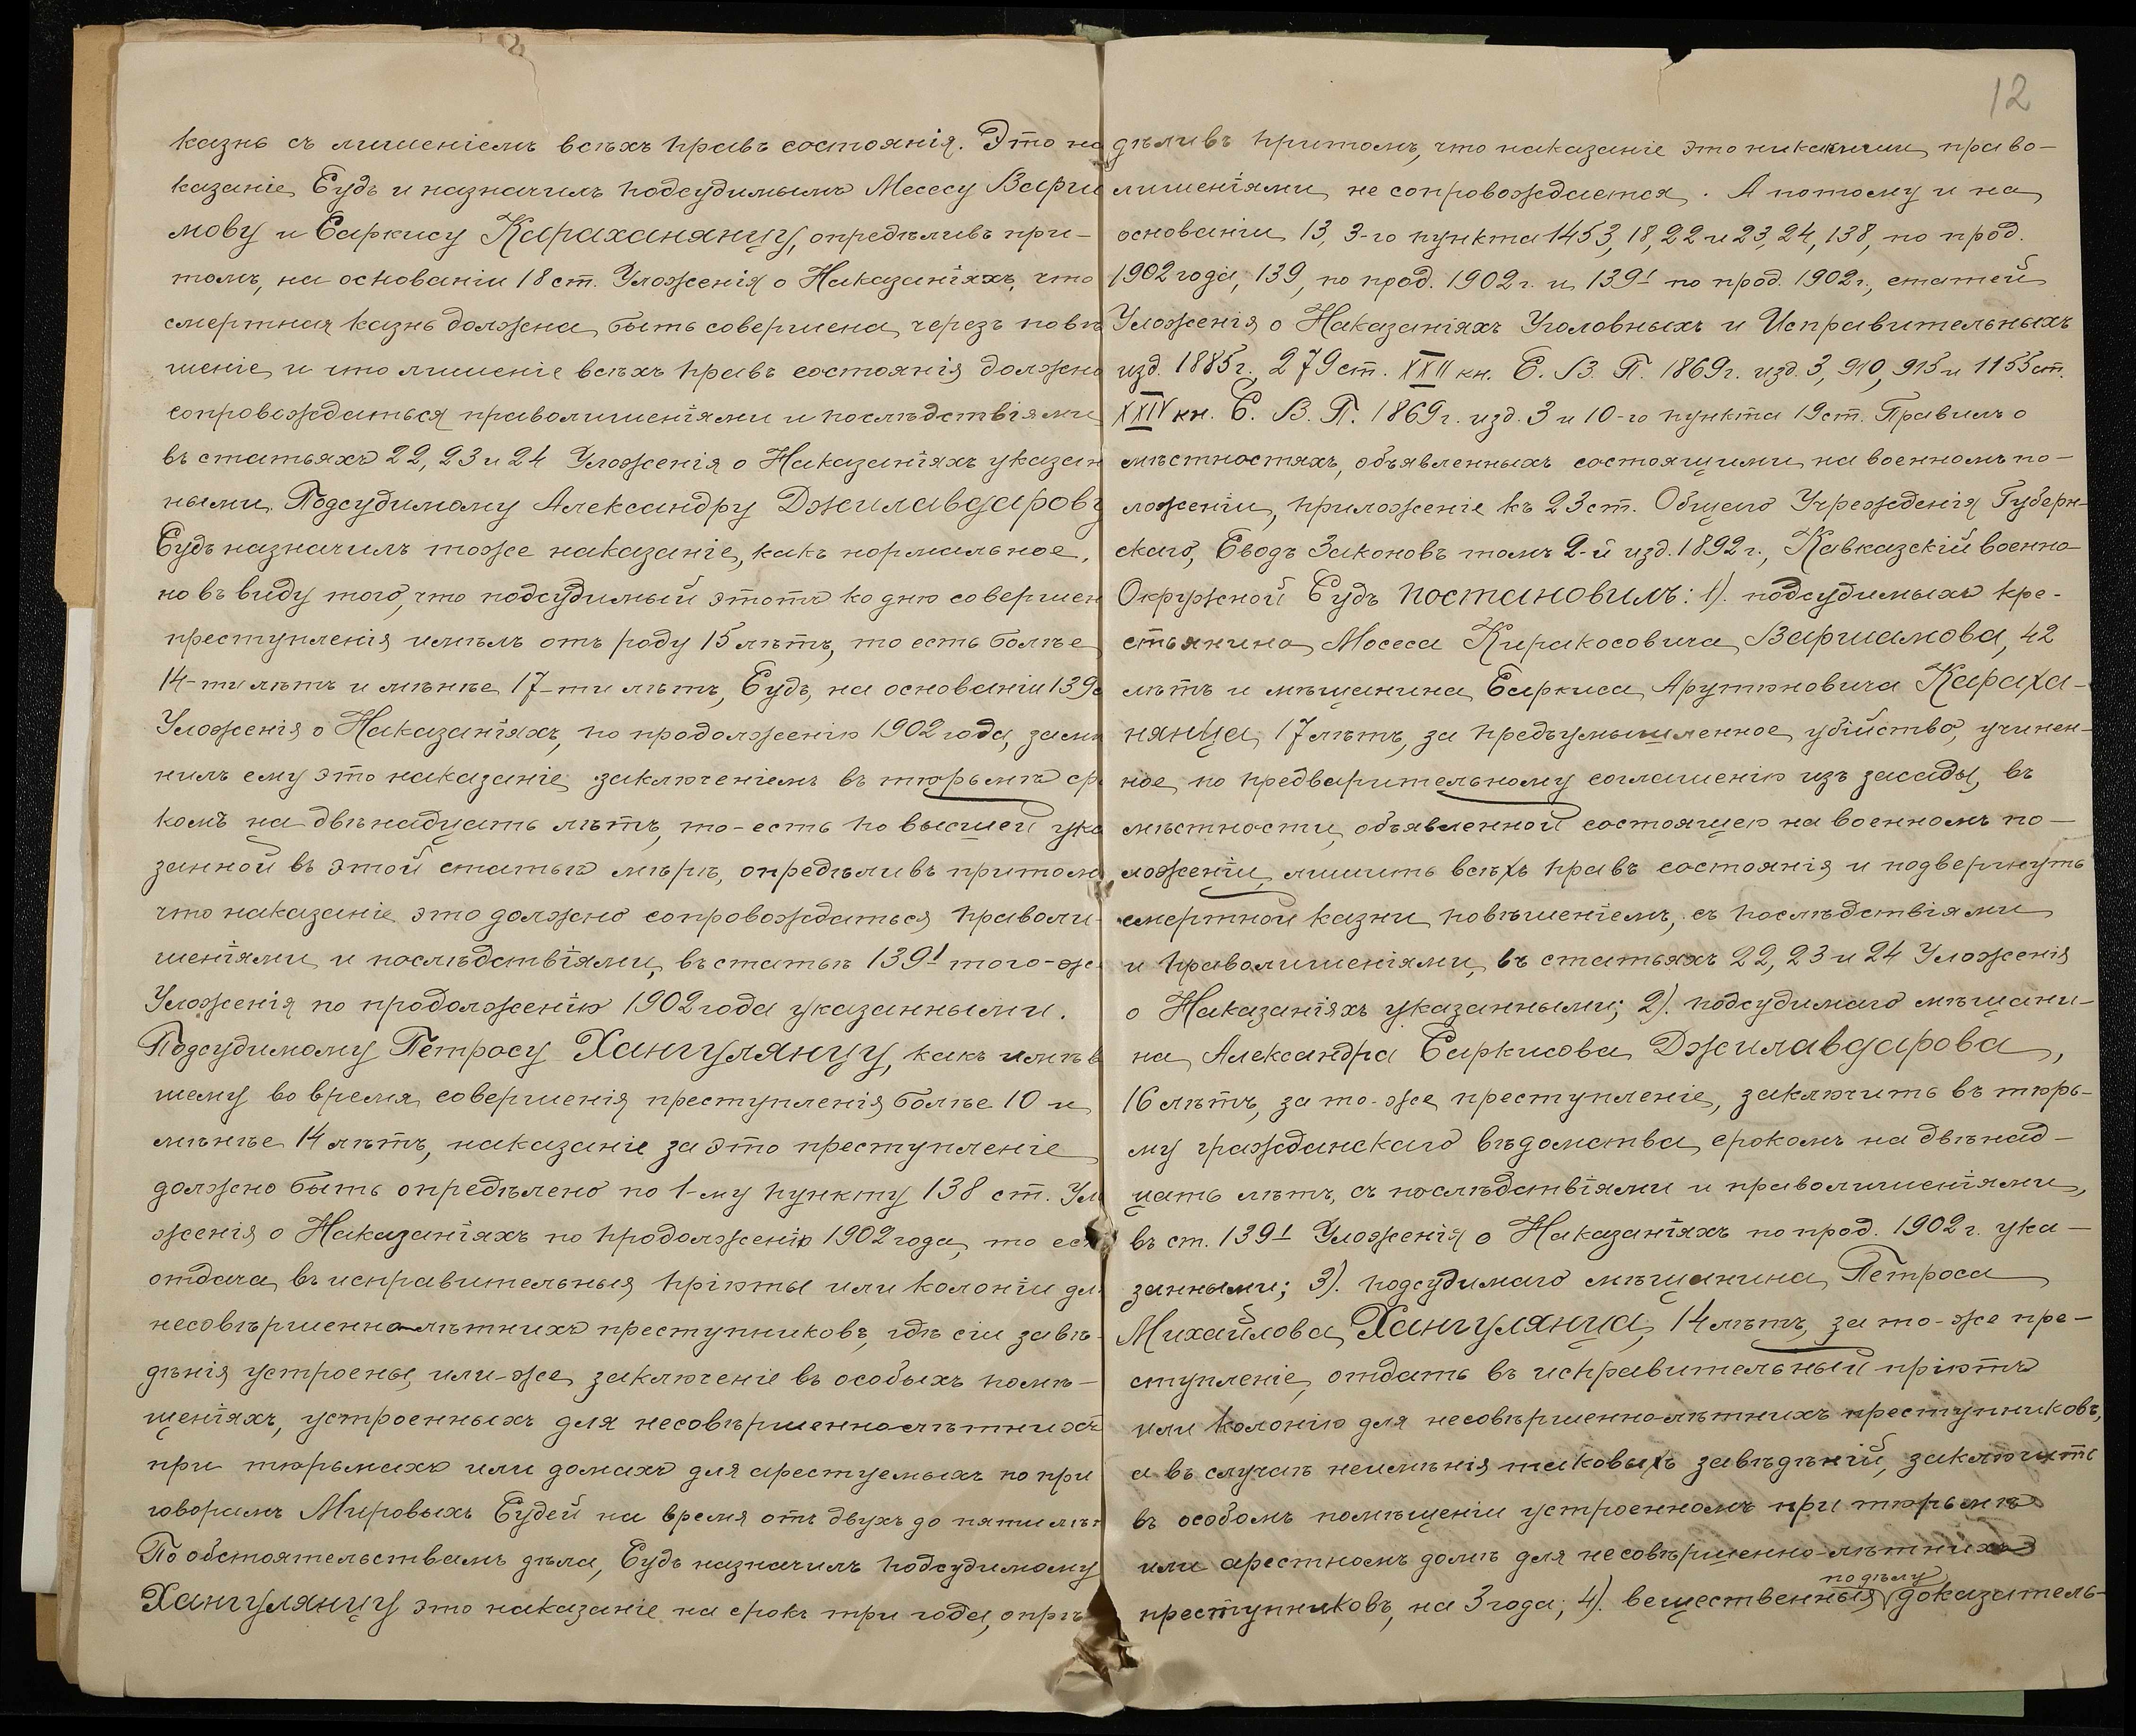 казнь съ лишеніемъ всѣхъ правъ состоянія. Это на
казаніе Судъ и назначилъ подсудимымъ Мосесу Варша
мову и Саркису Караханянцу, опредѣливъ при-
томъ, на основаніи 18 ст. Уложенія о Наказаніяхъ, что
смертная казнь должна быть совершена черезъ повѣ
шеніе и что лишеніе всѣхъ правъ состоянія должно
сопровождаться праволишеніями и послѣдствіями
въ статьяхъ 22, 23 и 24 Уложенія о Наказаніяхъ указан
ными. Подсудимому Александру Джилавдарову
Судъ назначилъ тоже наказаніе, какъ нормальное,
но въ виду того, что подсудимый этотъ ко дню совершен
преступленія имѣлъ отъ роду 15 лѣтъ, то есть болѣе
14-ти лѣтъ и менѣе 17-ти лѣтъ, Судъ, на основаніи 139 с
Уложенія о Наказаніяхъ, по продолженію 1902 года, замѣ
нилъ ему это наказаніе заключеніемъ въ тюрьмѣ сро
комъ на двѣнадцать лѣтъ, то-есть по высшей ука
занной въ этой статьѣ мѣрѣ, опредѣливъ притомъ
что наказаніе это должно сопровождаться праволи-
шеніями и послѣдствіями, въ статьѣ 139¹ того-же
Уложенія по продолженію 1902 года указанными.
Подсудимому Петросу Хангулянцу, какъ имѣв
шему во время совершенія преступленія болѣе 10 и
менѣе 14 лѣтъ, наказаніе за это преступленіе
должно быть опредѣлено по 1-му пункту 138 ст. Уло
женія о Наказаніяхъ по продолженію 1902 года, то есть
отдача въ исправительныя пріюты или колоніи для
несовершеннолѣтнихъ преступниковъ, гдѣ сіи заве-
денія устроены, или-же заключеніе въ особыхъ помѣ-
щеніяхъ, устроенныхъ для несовершеннолѣтнихъ
при тюрьмахъ или домахъ для арестуемыхъ по при
говорамъ Мировыхъ Судей на время отъ двухъ до пяти лѣт
По обстоятельствамъ дѣла, Судъ назначилъ подсудимому
Хангулянцу это наказаніе на срокъ три года, опре
12
дѣливъ притомъ, что наказаніе это никакими право-
лишеніями не сопровождается. А потому и на
основаніи 13, 3-го пункта 1453, 18, 22 и 23, 24, 138, по прод.
1902 года, 139, по прод. 1902 г. и 139¹ по прод. 1902 г., статей
Уложенія о Наказаніяхъ Уголовныхъ и Исправительныхъ
изд. 1885 г., 279 ст. XXII кн. С. В. П. 1869 г. изд. 3, 910, 915 и 1155 ст.
XXIV кн. С. В. П. 1869 г. изд. 3 и 10-го пункта 19 ст. Правилъ о
мѣстностяхъ, объявленныхъ состоящими на военномъ по-
ложеніи, приложеніе къ 23 ст. Общаго Учрежденія Губерн-
скаго, Сводъ Законовъ томъ 2-й изд. 1892 г., Кавказскій военно-
Окружной Судъ постановилъ: 1). подсудимыхъ кре-
стьянина Мосеса Киракосовича Варшамова, 42
лѣтъ и мѣщанина Саркиса Арутюновича Карaха-
нянца, 17 лѣтъ, за предъумышленное убійство, учинен-
ное по предварительному соглашенію изъ засады, въ
мѣстности, объявленной состоящею на военномъ по-
ложеніи, лишить всѣхъ правъ состоянія и подвергнуть
смертной казни повѣшеніемъ, съ послѣдствіями
и праволишеніями, въ статьяхъ 22, 23 и 24 Уложенія
о Наказаніяхъ указанными; 2). подсудимаго мѣщани-
на Александра Саркисова Джилавдарова,
16 лѣтъ, за то-же преступленіе, заключить въ тюрь-
му гражданскаго вѣдомства срокомъ на двѣнад-
цать лѣтъ, съ послѣдствіями и праволишеніями,
въ ст. 139¹ Уложенія о Наказаніяхъ по прод. 1902 г. ука-
занными; 3). подсудимаго мѣщанина Петроса
Михайлова Хангулянца, 14 лѣтъ, за то-же пре-
ступленіе, отдать въ исправительный пріютъ
или колонію для несовершеннолѣтнихъ преступниковъ,
а въ случаѣ неимѣнія таковыхъ заведеній, заключить
въ особомъ помѣщеніи устроенномъ при тюрьмѣ
или арестномъ домѣ для несовершенно-лѣтнихъ
по дѣлу
преступниковъ, на 3 года; 4). вещественныя доказатель-